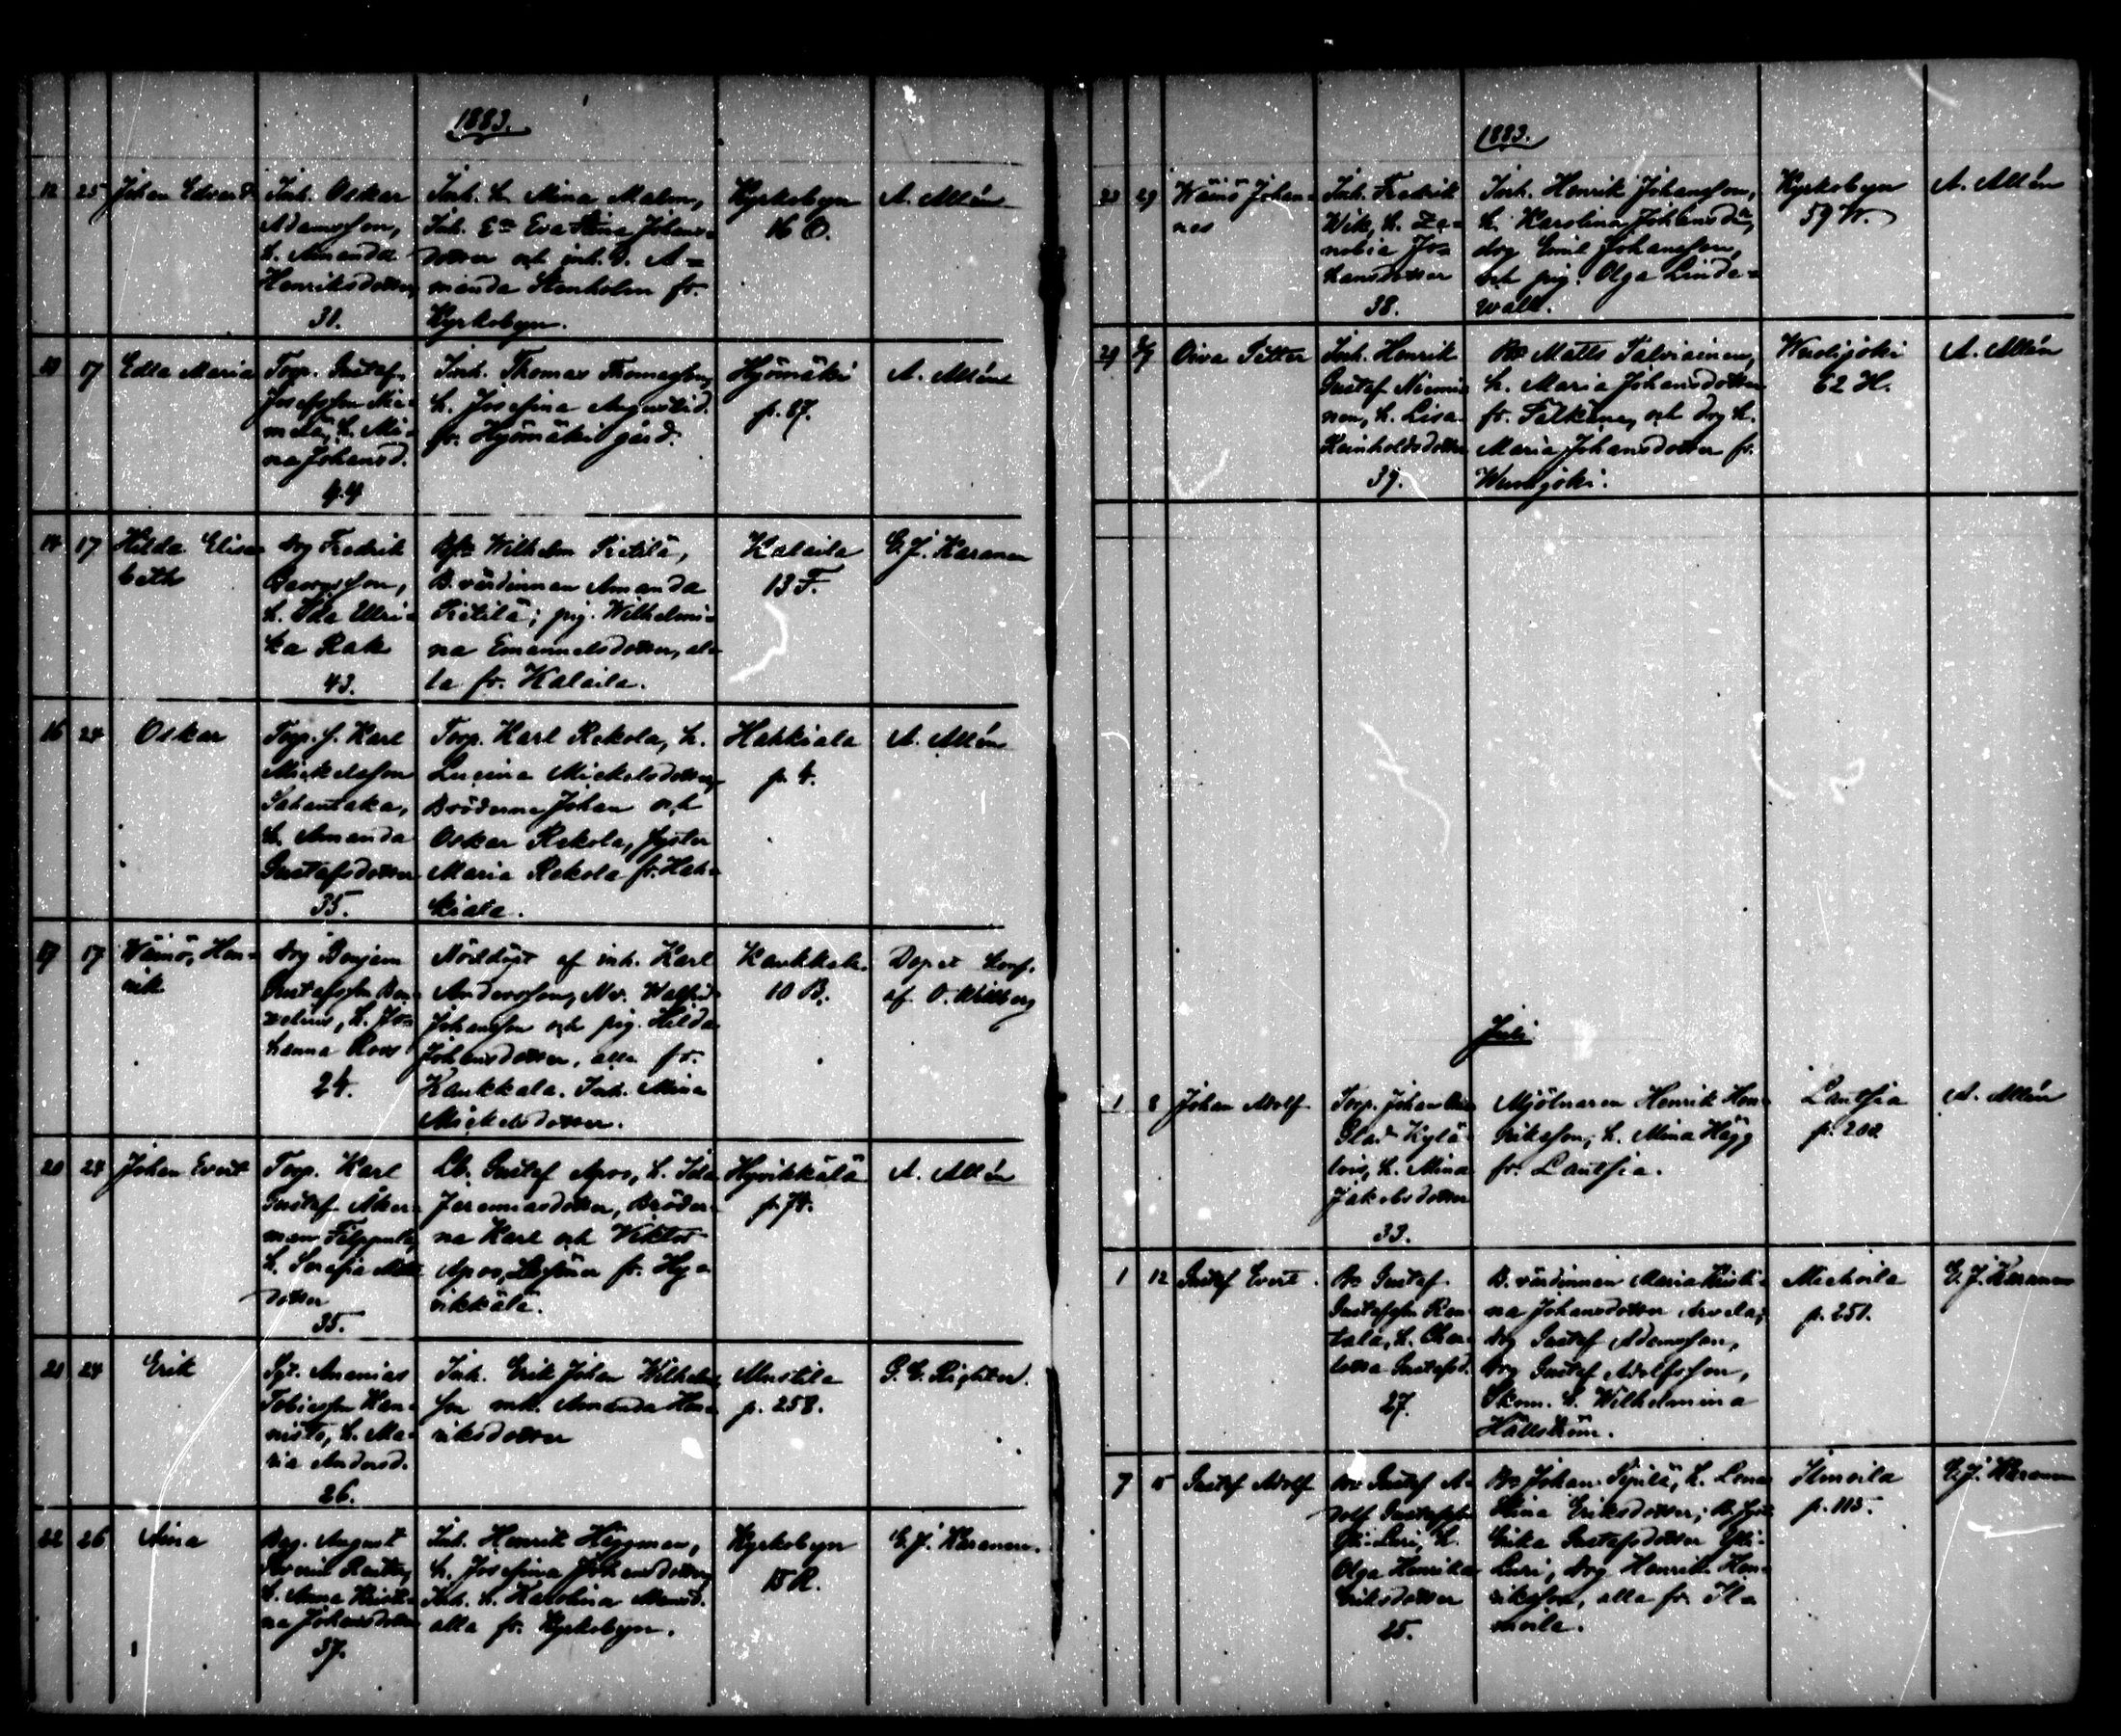 1883.
12 25 Johan Edvard
Inh. Oskar
Adamsson,
h. Amanda
Henriksdotter,
31.
Inh. h. Mina Malm,
Inh. Eva Stina Johans-
dotter och inh. d. A=
manda Stenholm fr.
Kyrkobyn.
Kyrkobyn
16 O.
A. Allén
13 17 Edla Maria
Torp. Gustaf
Josefsson Nie-
melä, h. Mi-
na Johansd.
44
Inh. Thomas Thomasson,
h. Josefina Augustid.
fr. Hyömäki gård.
Hyömäki
p. 87.
A. Allén
14 17 Hilda Elisa-
beth
drg Fredrik
h. Ida Ulri-
ka Rak
43.
Wilhelm Pietilä,
B. värdinnan Amanda
Pietilä; pig. Wilhelmi-
na Emanuelsdotter, al-
la fr. Kalaila.
Kalaila
13 F.
G. J. Karanen
16 24 Oskar
Torp. s. Karl
Mickelsson
h. Amanda
Gustafsdotter
35.
Torp. Karl Rekola, h.
Lucina Mickelsdotter,
Bröderna Johan och
Oskar Rekola, syster
Maria Rekola fr. Hah-
kiala.
Hahkiala
p. 4.
A. Allén
17 17 Wäinö, Hen-
rik
drg Benjam
Gustafsson
h. Jo-
hanna Roos
24.
Nöddöpt af inh. Karl
Andersson,
Johansson och pig. Hilda
Johansdotter, alla fr.
Kaukkala. Inh. Mina
Mickelsdotter.
Kaukkala.
10 B.
Dopet konf.
af O.
20 24 Johan Evert
Torp. Karl
Gustaf Åker-
man Filppula,
h. Serafia
dotter
35.
Gustaf Apos, h. Ida
Jeremiasdotter, Bröder-
na Karl och Viktor
Apos, fr. Hy-
vikkälä.
Hyvikkälä
p. 74.
A. Allén
21 24 Erik
Ananias
Tobiasson Han-
nisto, h. Ma-
ria Andersd.
26.
Inh. Erik Johan Wilhelms-
son och Amanda Hen-
riksdotter
Mustila
p. 258.
22 26 Aina
August
h. Anna Kristi-
na Johansdotter
37.
Inh. Henrik Häggman,
h. Josefina Johansdotter,
Inh. h. Karolina
alla fr. Kyrkobyn.
Kyrkobyn
15 R.
G. J. Karanen.
1883.
23 29 Wäinö Johan-
nes
Inh. Fredrik
Wik, h. Ze-
nobia Jo-
hansdotter
38.
Inh. Henrik Johansson,
h. Karolina Johansdr,
drg Emil Johansson,
och pig. Olga Linde-
wall.
Kyrkobyn
59 W.
A. Allén
29 Oiva Petter
Inh. Henrik
Gustaf Niemi-
nen, h. Lisa
Reinholdsdotter
39.
Matts Talviainen,
h. Maria Johansdotter
fr. Pälkäne, och drg h.
Maria Johansdotter fr.
Wuohijoki.
Wuohijoki
62 H.
A. Allén
Juli
1 8 Johan Adolf
Torp. Johan
Glad Kylä-
h. Mina
Jakobsdotter
33.
Mjölnaren Henrik Hen-
riksson, h. Mina Hägg
fr. Lautsia.
Lautsia
p. 202
A. Allén
1 12 Gustaf Evert.
Gustaf
Gustafsson
h. Char-
lotta Gustafsd.
27.
B. värdinnan Maria Kristi-
na Johansdotter
drg Gustaf Adamsson,
drg Gustaf Adolfsson,
Skom. h. Wilhelmina
Hällström.
Miehoila
p. 251.
G. J. Karanen
7 15 Gustaf Adolf
Gustaf A-
dolf Gustafsson
h.
Olga Henrika
Eriksdotter
25.
Johan h. Lena
Stina Eriksdotter;
Erika Gustafsdotter
drg Henrik Hen-
riksson, alla fr. Il-
moila.
Ilmoila
p. 113.
G. J. Karanen